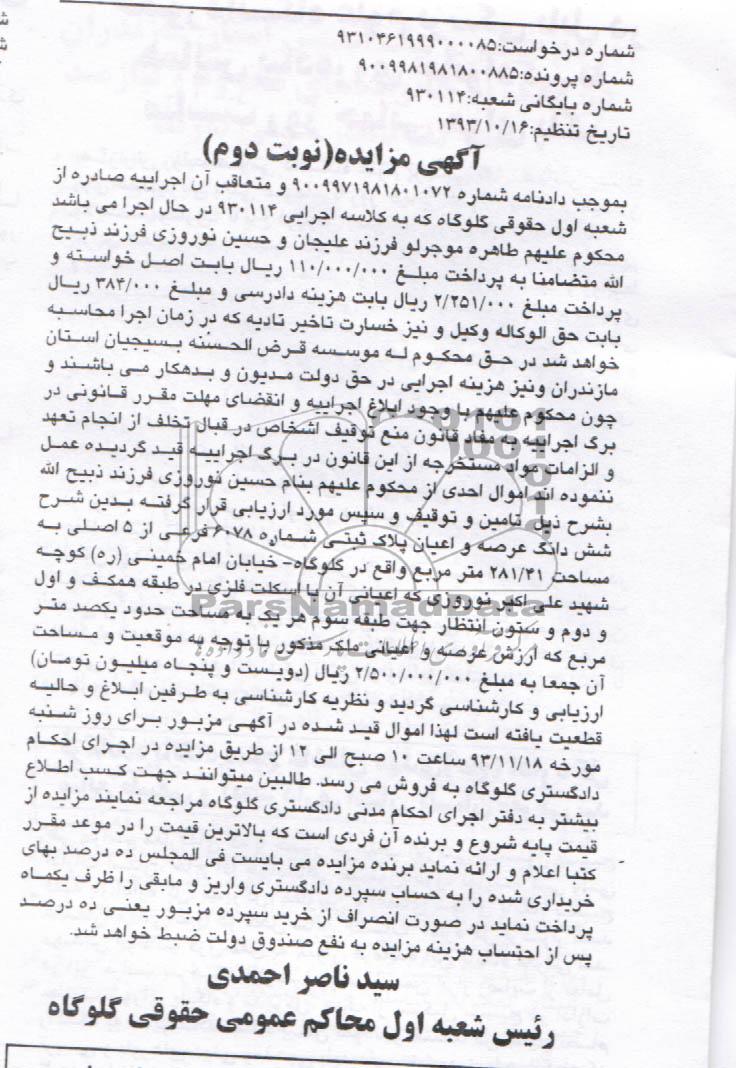 شماره درخواست:۹۳۱۰۴۶۱۹۹۹۰۰۰۰۸۵
شماره پرونده:۹۰۰۹۹۸۱۹۸۱۸۰۰۸۸۵
شماره بایگانی شعبه:۹۳۰۱۱۴
تاریخ تنظیم:۱۳۹۳/۱۰/۱۶
آگهی مزایده(نوبت دوم)
بموجب دادنامه شماره ۹۰۰۹۹۷۱۹۸۱۸۰۱۰۷۲ و متعاقب آن اجراییه صادره از
شعبه اول حقوقی گلوگاه که به کلاسه اجرایی ۹۳۰۱۱۴ در حال اجرا می باشد
محکوم علیهم طاهره موجرلو فرزند علیجان و حسین نوروزی فرزند ذبیح
الله متضامنا به پرداخت مبلغ ۱۱۰/۰۰۰/۰۰۰ ریال بابت اصل خواسته و
پرداخت مبلغ ۲/۲۵۱/۰۰۰ ریال بابت هزینه دادرسی و مبلغ ۳۸۴/۰۰۰ ریال
بابت حق الوکاله وکیل و نیز خسارت تاخیر تادیه که در زمان اجرا محاسبه
خواهد شد در حق محکوم له موسسه قرض الحسنه بسیجیان استان
مازندران ونیز هزینه اجرایی در حق دولت مدیون و بدهکار می باشند و
چون محکوم علیهم با وجود ابلاغ اجراییه و انقضای مهلت مقرر قانونی در
برگ اجراییه به مفاد قانون منع توقیف اشخاص در قبال تخلف از انجام تعهد
و الزامات مواد مستخرجه از این قانون در برگ اجراییه قید گردیده عمل
ننموده اند اموال احدی از محکوم علیهم بنام حسین نوروزی فرزند ذبیح الله
بشرح ذیل تامین و توقیف و سپس مورد ارزیابی قرار گرفته بدین شرح
شش دانگ عرصه و اعیان پلاک ثبتی شماره ۶۰۷۸ فرعی از ۵ اصلی به
مساحت ۲۸۱/۴۱ متر مربع واقع در گلوگاه- خیابان امام خمینی (ره) کوچه
شهید علی اکبر نوروزی که اعیانی آن با اسکلت فلزی در طبقه همکف و اول
و دوم و ستون انتظار جهت طبقه سوم هر یک به مساحت حدود یکصد متر
مربع که ارزش عرصه و اعیانی ملک مذکور با توجه به موقعیت و مساحت
آن جمعا به مبلغ ۲/۵۰۰/۰۰۰/۰۰۰ ریال (دویست و پنجاه میلیون تومان)
ارزیابی و کارشناسی گردید و نظریه کارشناسی به طرفین ابلاغ و حالیه
قطعیت یافته است لهذا اموال قید شده در آگهی مزبور برای روز شنبه
مورخه ۹۳/۱۱/۱۸ ساعت ۱۰ صبح الی ۱۲ از طریق مزایده در اجرای احکام
دادگستری گلوگاه به فروش می رسد. طالبین میتوانند جهت کسب اطلاع
بیشتر به دفتر اجرای احکام مدنی دادگستری گلوگاه مراجعه نمایند مزایده از
قیمت پایه شروع و برنده آن فردی است که بالاترین قیمت را در موعد مقرر
کتبا اعلام و ارائه نماید برنده مزایده می بایست فی المجلس ده درصد بهای
خریداری شده را به حساب سپرده دادگستری واریز و مابقی را ظرف یکماه
پرداخت نماید در صورت انصراف از خرید سپرده مزبور یعنی ده درصد
پس از احتساب هزینه مزایده به نفع صندوق دولت ضبط خواهد شد.
سید ناصر احمدی
رئیس شعبه اول محاکم عمومی حقوقی گلوگاه
ParsNamadData